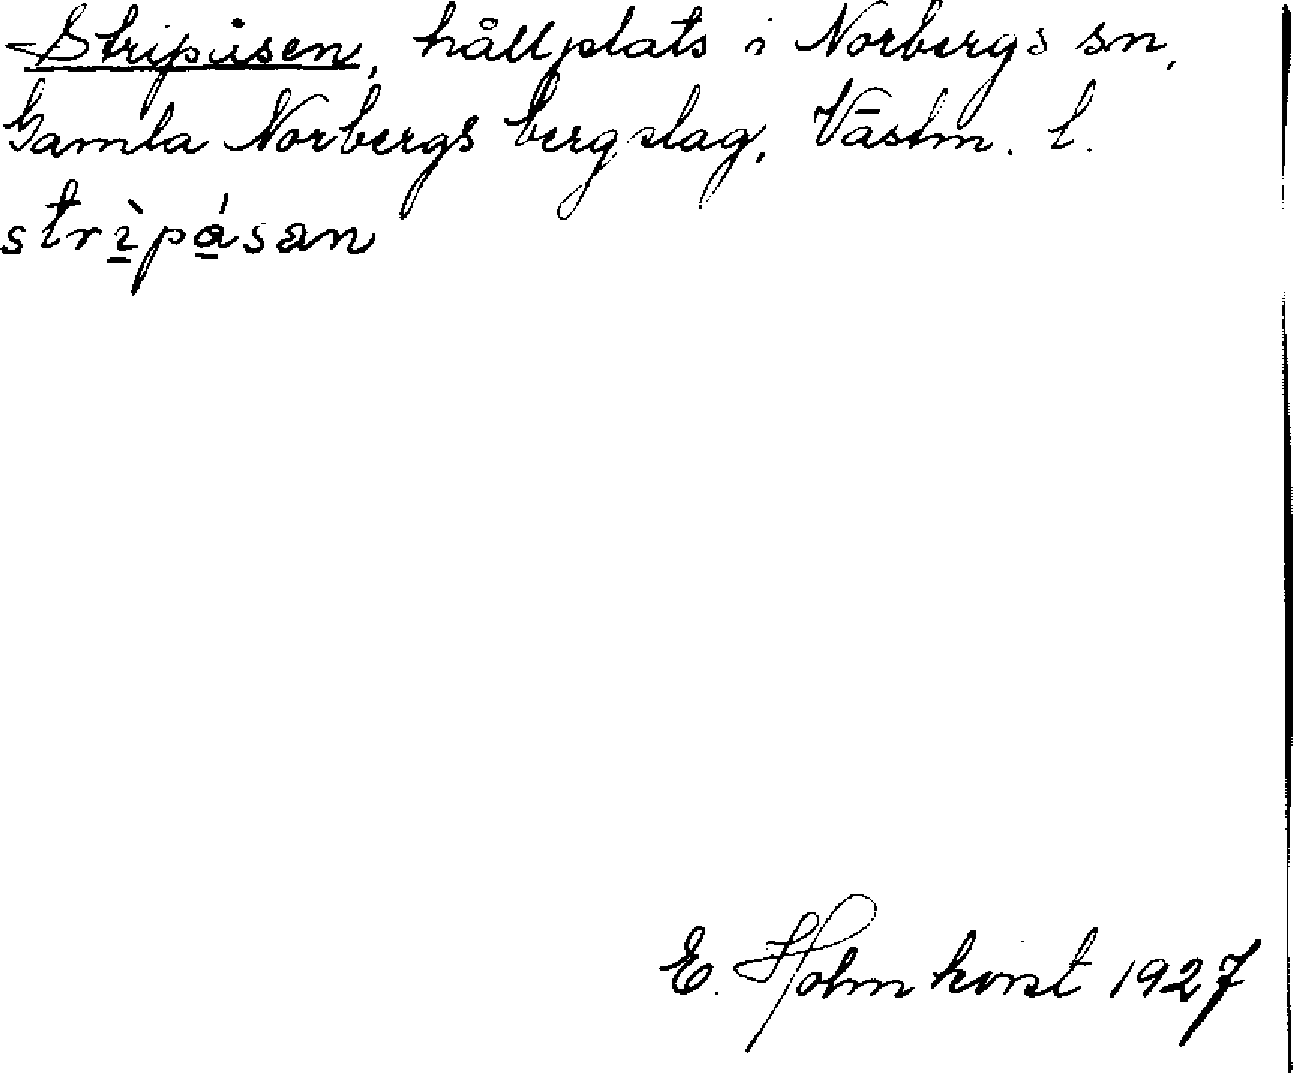 Stripåsen, hållplats i Norbergs sn,
Gamla Norbergs bergslag, Västm. l.
strìpásan
E. Holmkvist 1927